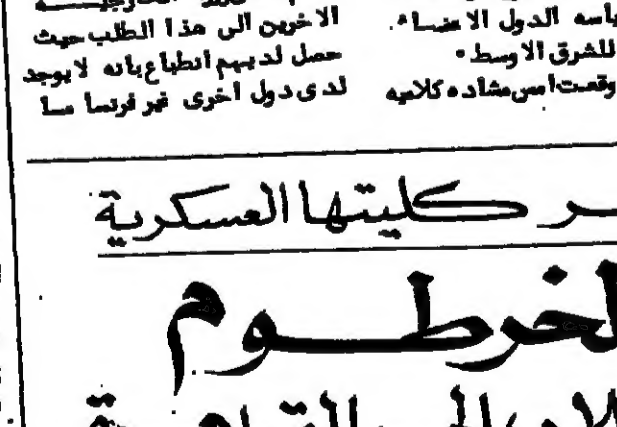 باسه الدول الاعضاء.
للشرق الاوسط.
وقعت امس مشاده كلاميه
الاخرين الى هذا الطلب حيث
حصل لديهم انطباع بانه لايوجد
لدى دول اخرى غير فرنسا سا
ـر كليتها العسكرية
لخرطوم